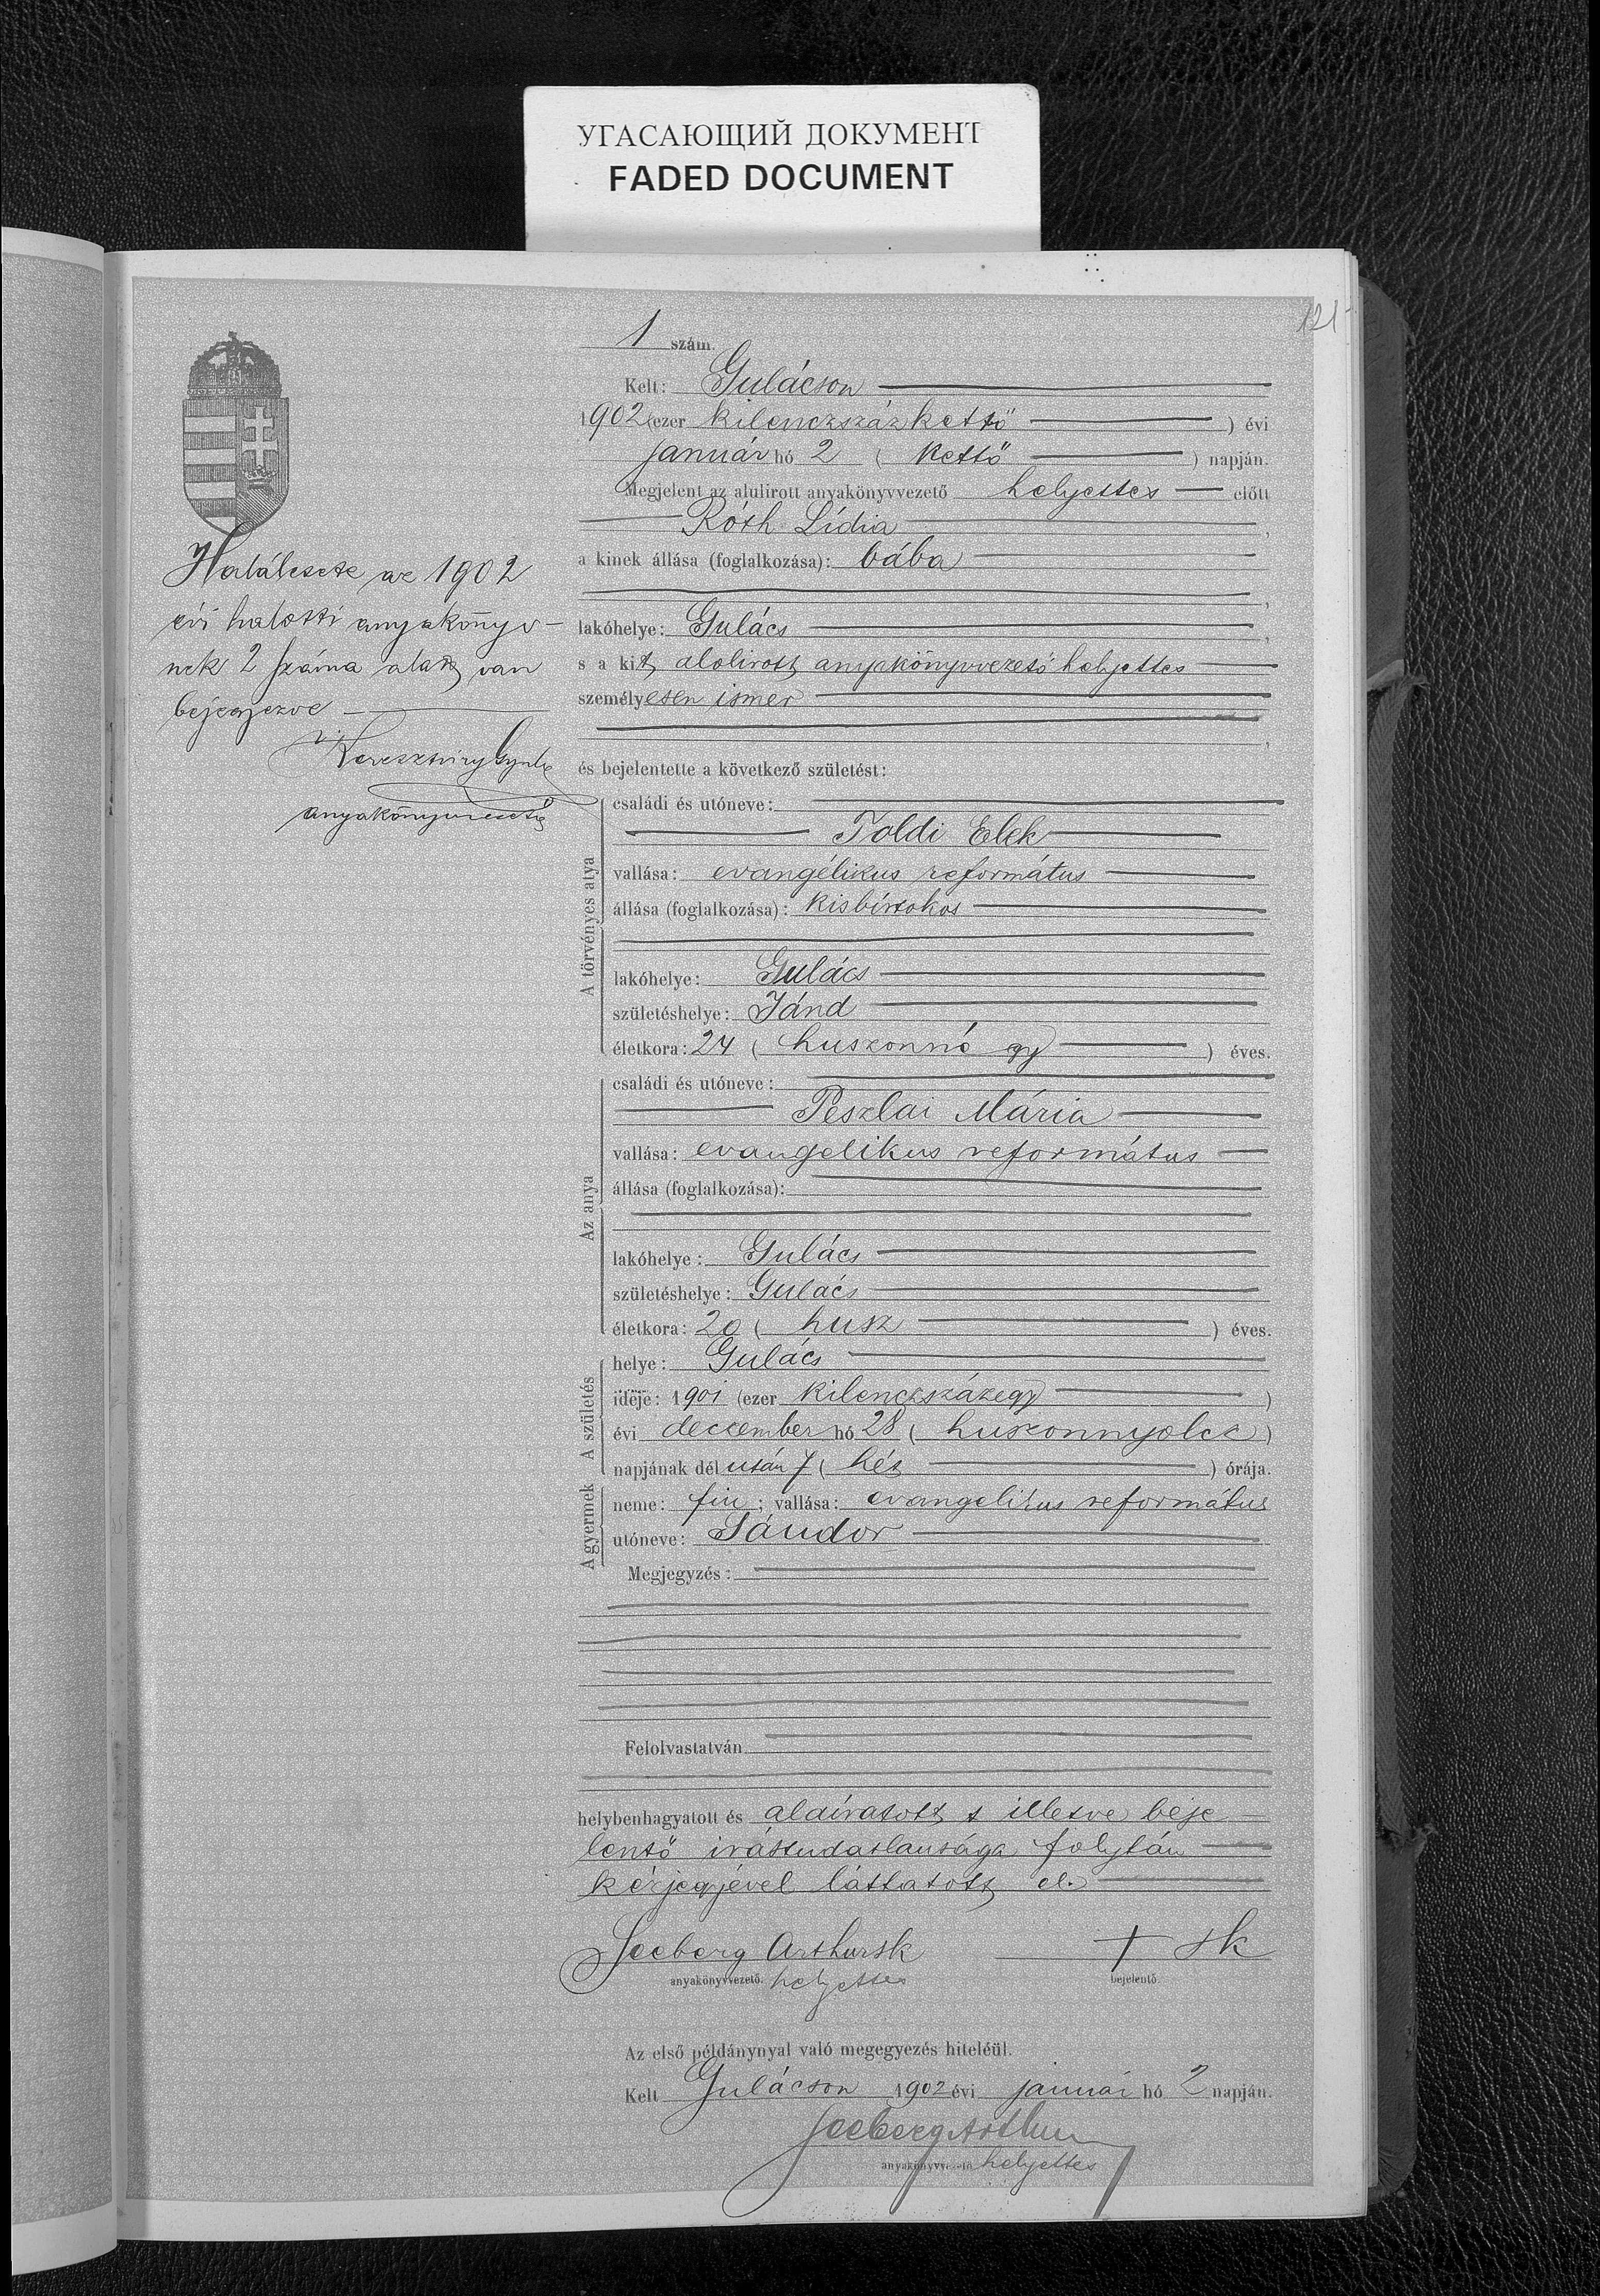 УГАСАЮЩИЙ ДОКУМЕНТ
FADED DOCUMENT
121
1 szám.
Kelt: Gulácson
1902 (ezer kilenczszázkettő ) évi
január hó 2 ( kettő ) napján.
Megjelent az alulirott anyakönyvvezető helyettes előtt
Róth Lídia ,
a kinek állása (foglalkozása): bába
,
lakóhelye: Gulács ,
s a kit alolirott anyakönyvvezető helyettes
személyesen ismer
,
és bejelentette a következő születést:
Halálesete az 1902
évi halotti anyakönyv-
nek 2 száma alatt van
bejegyezve
Keresztúry Gyula
anyakönyvvezető
A törvényes atya
családi és utóneve:
Toldi Elek
vallása: evangélikus református
állása (foglalkozása): kisbirtokos
lakóhelye: Gulács
születéshelye: Jánd
életkora: 24 ( huszonnégy ) éves.
Az anya
családi és utóneve:
Peszlai Mária
vallása: evangelikus református
állása (foglalkozása):
lakóhelye: Gulács
születéshelye: Gulács
életkora: 20 ( husz ) éves.
A születés
helye: Gulács
ideje: 1901 (ezer kilenczszázegy )
évi deczember hó 28 ( huszonnyolcz )
napjának délután 7 ( hét ) órája.
A gyermek
neme: fiu ; vallása: evangelikus református
utóneve: Sándor
Megjegyzés:
Felolvastatván
helybenhagyatott és aláiratott s illetve beje-
lentő irástudatlansága folytán
kézjegyével láttatott el.
Seeberg Arthur sk
anyakönyvvezető. helyettes
+ sk
bejelentő.
Az első példánynyal való megegyezés hiteléül.
Kelt Gulácson 1902 évi január hó 2 napján.
Seeberg Arthur
anyakönyvvezető helyettes